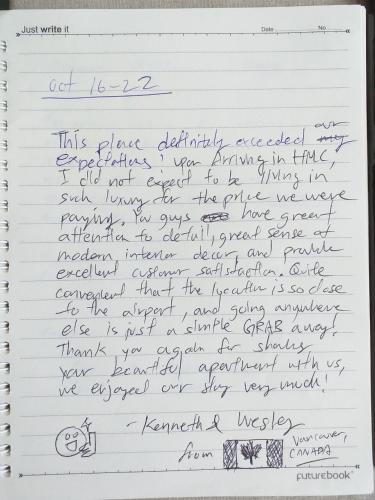 Just write it
Date No
oct 16-22
This place definitely exceeded our
expectations! upon Arriving in HMC,
I did not expect to be living in
such luxury for the price we were
paying. You guys have great
attention to detail, great sense of
modern interior decor, and provide
excellent customer satisfaction. Quite
convenient that the location is so close
to the airport, and going anywhere
else is just a simple GRAB away!
Thank you again for sharing
your beautiful apartment with us,
we enjoyed our stay very much!
- Kenneth & Wesley
from Vancouver,
CANADA
futurebook